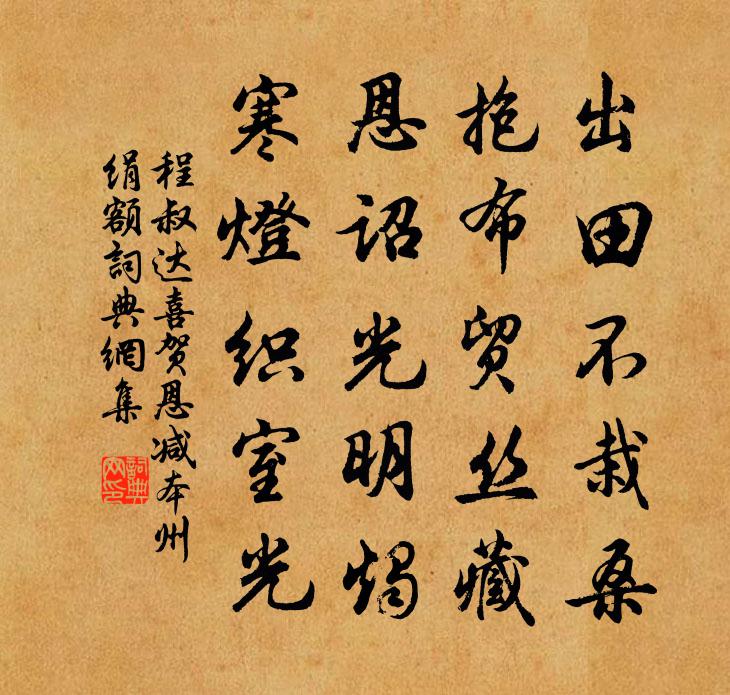 出田不栽桑
抱布贸丝藏
恩诏光明烛
寒燈织室光
程叔达喜贺恩减本州
绢额詞典網集
詞典